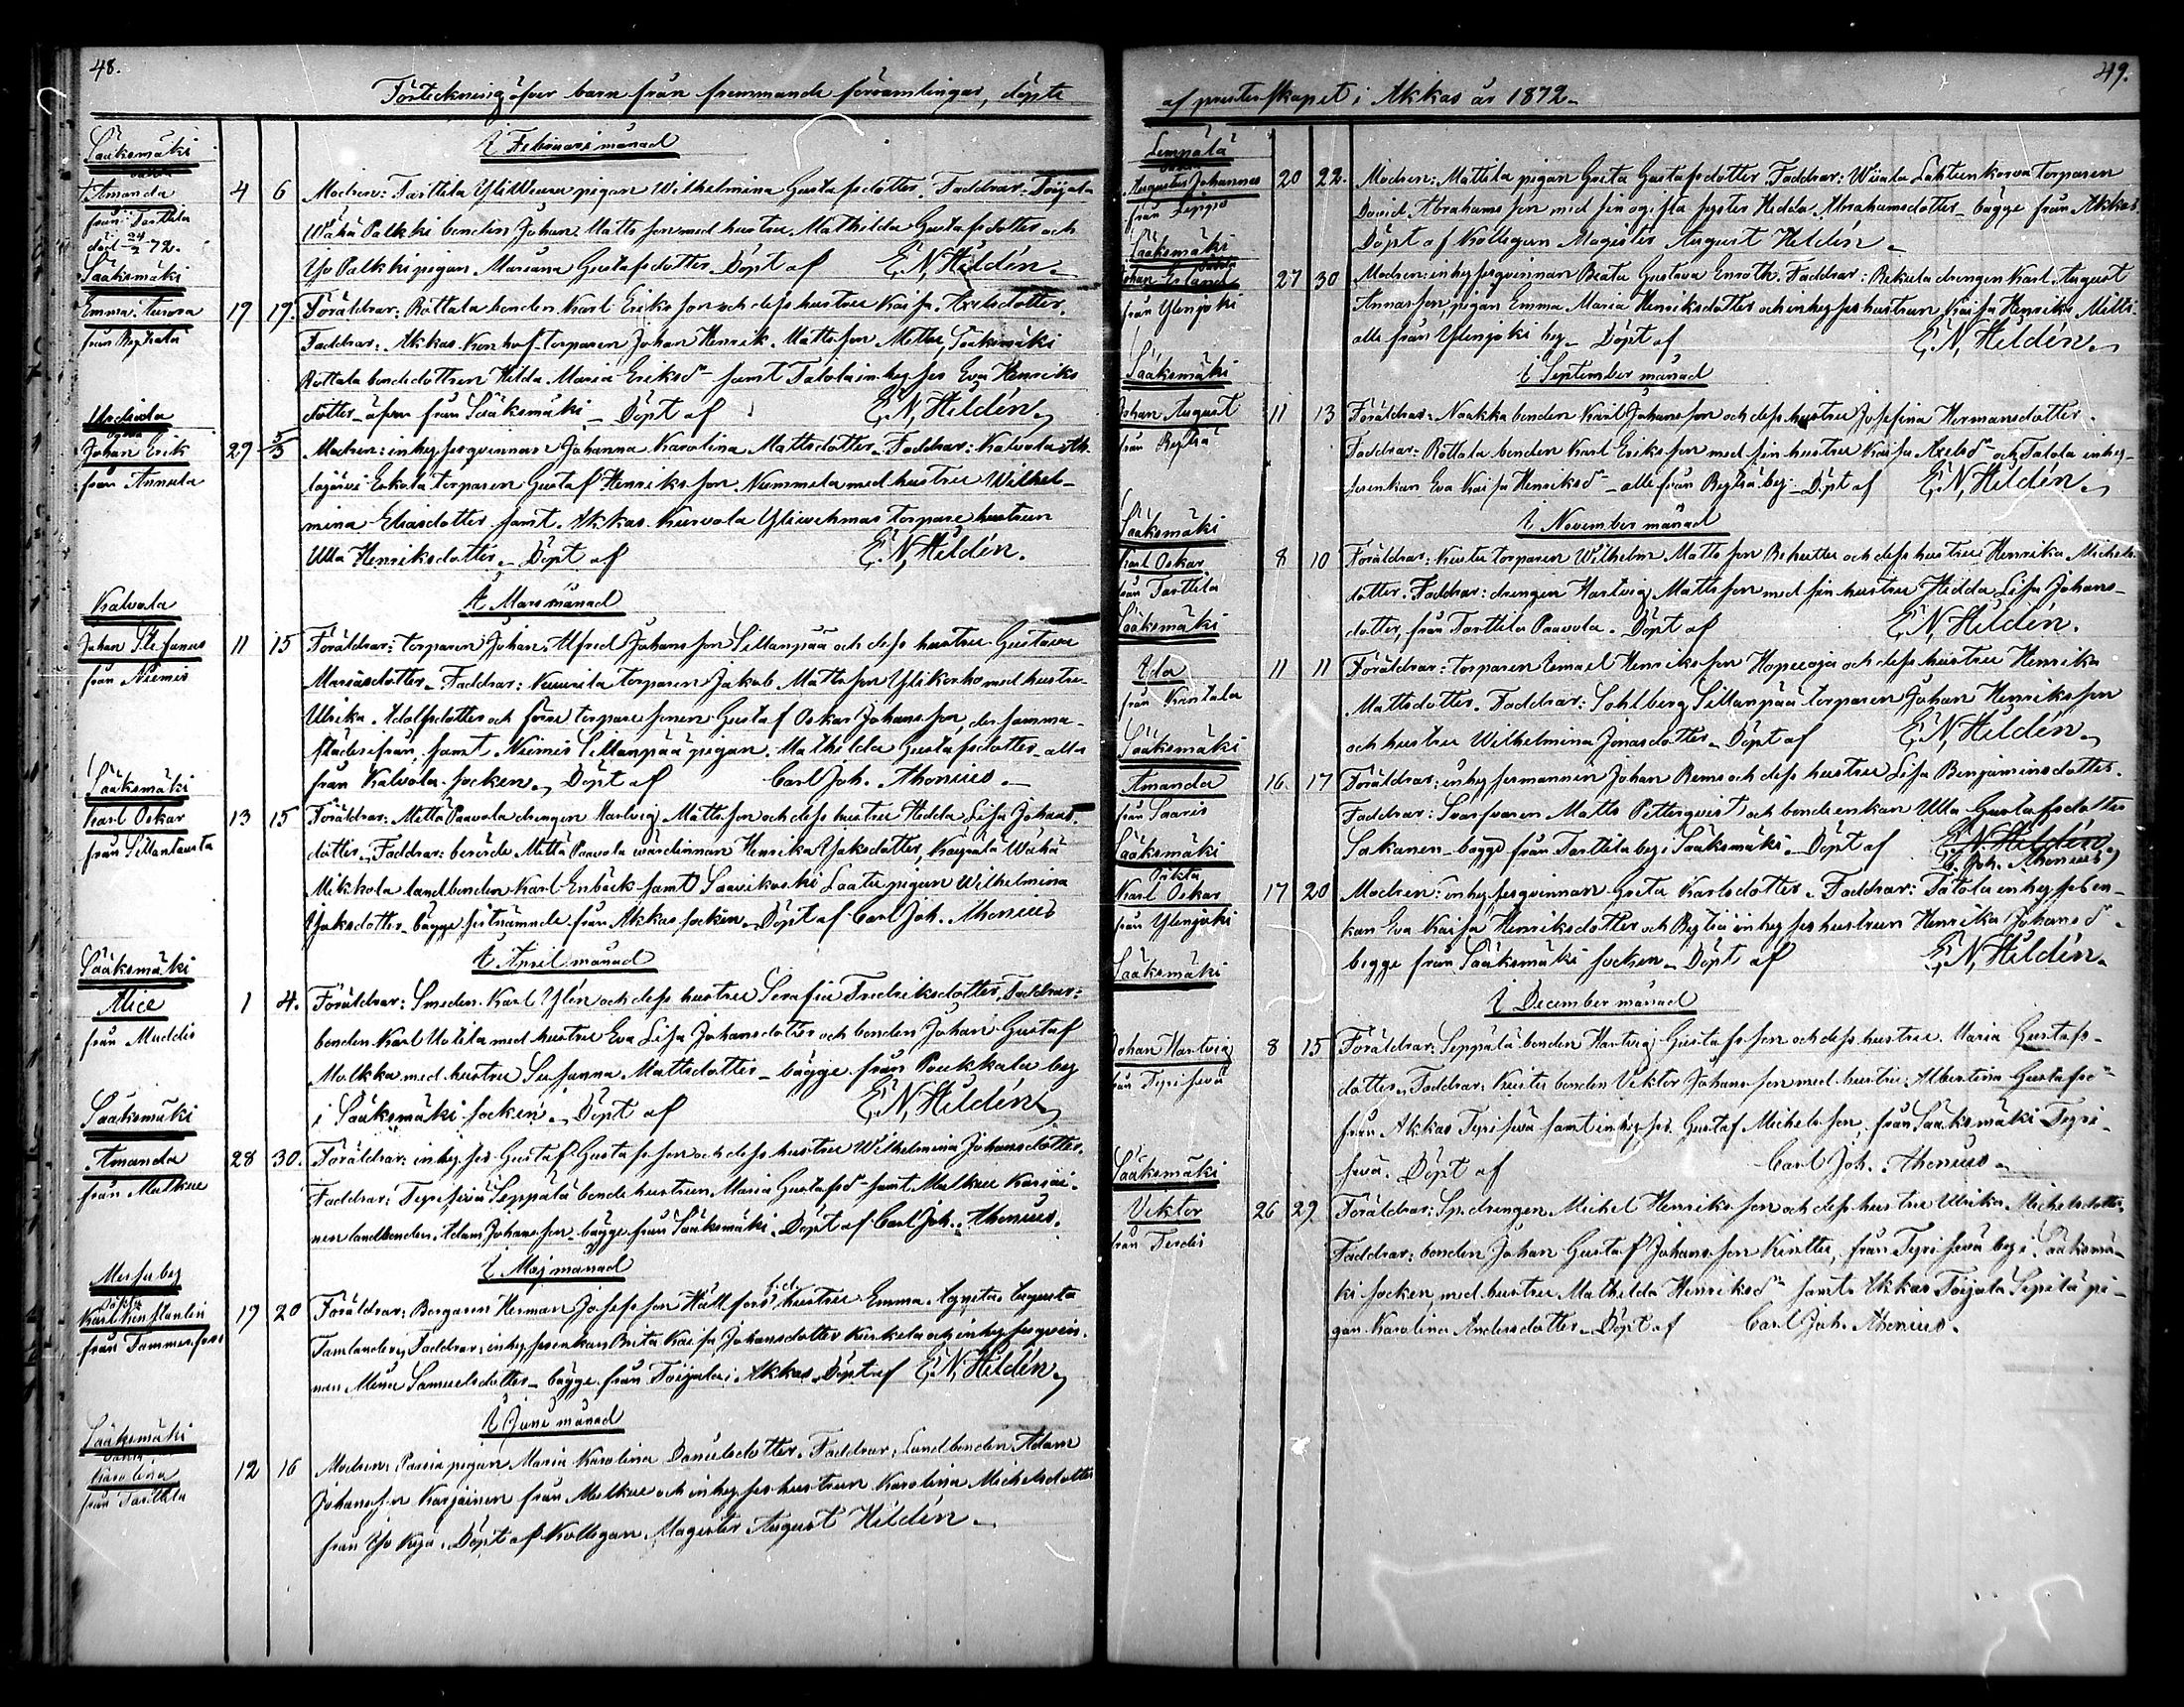 48.
Förteckning öfver barn från fremmande församlingar, döpte
I Februari månad
Sääksmäki
oäkta
Amanda
från Tarttila
död 24/2 72.
4 6 Modren: Tarttila Yli Uotila pigan Wilhelmina Gustafsdotter. Faddrar: Toijala
Wähä Palkki bonden Johan Mattsson med hustru Mathilda Gustafsdotter och
Yso Palkki pigan Mariana Gustafsdotter. Döpt af E. N. Hildén.
Sääksmäki
Emma Aurora
från
19 19. Föräldrar: Rottala bonden Karl Eriksson och dess hustru Kaisa Axelsdotter.
Faddrar: Akkas torparen Johan Henrik Mattsson Mettu, Sääksmäki
Rottala bondedottren Hilda Maria Eriksdr samt Talola inhyses Eva Henriks
dotter äfven från Sääksmäki. Döpt af E. N. Hildén.
Urdiala
Johan Erik
från Annula
29 5/3 Modren: inhysesqvinnan Johanna Karolina Mattsdotter. Faddrar: Kalvola
Eskola torparen Gustaf Henriksson Nummela med hustru Wilhel-
mina Eliasdotter samt Akkas Kurvola torpare hustrun
Ulla Henriksdotter. Döpt af E. N. Hildén.
I Mars månad
Kalvola
Johan Stefanus
från Niemis
11 15 Föräldrar: torparen Johan Alfred Johansson Sillanpää och dess hustru Gustava
Mariasdotter. Faddrar: torparen Jakob Mattsson Ylikorho med hustru
Ulrika Adolfsdotter och förre torpare sonen Gustaf Oskar Johansson, der samma-
städes ifrån, samt Niemis Sillanpää pigan Mathilda Gustafsdotter alla
från Kalvola socken. Döpt af Carl Joh. Thonius.
Sääksmäki
Karl Oskar
från Sillantausta
13 15 Föräldrar: Mettä Paavola drengen Hartvig Mattsson och dess hustru Hedda Lisa Johans-
dotter. Faddrar: berörde Mettä Paavola wärdinnan Henrika Isaksdotter, Wähä
Mikkola landbonden Karl Enbäck samt Saarikoski Laatu pigan Wilhelmina
Isaksdotter bägge sistnämnde från Akkas socken. Döpt af Carl Joh. Thonius
I April månad
Sääksmäki
Alice
från Muddis
1 4. Föräldrar: Smeden Karl Ylén och dess hustru Serafia Fredriksdotter, Faddrar:
bonden Karl Uotila med hustru Eva Lisa Johansdotter och bonden Johan Gustaf
Molkka med hustru Susanna Mattsdotter bägge från Paukkala by
i Sääksmäki socken. Döpt af E. N. Hildén.
Sääksmäki
Amanda
från Matkue
28 30. Föräldrar: inhyses Gustaf Gustafsson och dess hustru Wilhelmina Johansdotter.
Faddrar: Tyrisevä Seppälä bonde hustrun Maria Gustafsdr samt Matkue Karjai-
nen landbonden Adam Johansson bägge från Sääksmäki. Döpt af Carl Joh. Thonius.
I Maj månad
Messuby
Karl Konstantin
från Tammerfors
19 20 Föräldrar: Borgaren Herman Josefsson Hällfors f.d. hustru Emma Agnetas Augusta
Tamlander, Faddrar: inhysesenkan Brita Kaisa Johansdotter Kurkela och inhysesqvin-
nan Mina Samuelsdotter bägge från Toijala i Akkas. Döpt af E. N. Hildén.
I Juni månad
Sääksmäki
Karolina
från Tarttila
12 16 Modren: pigan Maria Karolina Danielsdotter. Faddrar: Landbonden Adam
Johansson Karjainen från Matkue och inhyseshustrun Karolina Michelsdotter
från Döpt af Kollegan Magister August Hildén.
49.
af presterskapet i Akkas år 1872.
Lempälä
Augustus Johannes
från
20 22. Modren: Mattila pigan Greta Gustafsdotter Faddrar: Wiiala Lahtenkorva torparen
David Abrahamsson med sin ogifta syster Hedda Abrahamsdotter bägge från Akkas.
Döpt af Kollegan Magister August Hildén.
Sääksmäki
Johan
från Ylenjoki
27 30 Modren: inhysesqvinnan Beata Gustava Enroth. Faddrar: Rekiula drengen Karl August
Annasson, pigan Emma Maria Henriksdotter och inhyseshustrun Kaisa Henrika Matts
alle från Ylenjoki by. Döpt af E. N. Hildén.
I September månad
Sääksmäki
Johan August
från
11 13 Föräldrar: Naakka bonden Karl Johansson och dess hustru Josefina Hermansdotter.
Faddrar: Rottala bonden Karl Eriksson med sin hustru Kaisa Axelsdr och Talola inhy-
sesenkan Eva Kaisa Henriksdr alle från by. Döpt af E. N. Hildén.
I November månad
Sääksmäki
Karl Oskar
från Tarttila
8 10 Föräldrar: torparen Wilhelm Mattsson och dess hustru Henrika Michels-
dotter. Faddrar: drengen Hartvig Mattsson med sin hustru Hedda Lisa Johans-
dotter, från Tarttila Paavola. Döpt af E. N. Hildén.
Sääksmäki
Ida
från Kantala
11 11 Föräldrar: torparen Ismael Henriksson Hopeoja och dess hustru Henrika
Mattsdotter. Faddrar: Sohlberg Sillanpää torparen Johan Henriksson
och hustru Wilhelmina Jonasdotter. Döpt af E. N. Hildén.
Sääksmäki
Amanda
från Saaris
16. 17 Föräldrar: inhysesmannen Johan Remo och dess hustru Lisa Benjaminsdotter.
Faddrar: Svarfvaren Matts Petterqvist och bondeenkan Ulla Gustafsdotter
Sakanen bägge från Tarttila by i Sääksmäki. Döpt af E. N. Hildén
C. Joh. Thonius
Sääksmäki
Oäkta
Karl Oskar
från Ylenjoki
17 20 Modren: inhysesqvinnan Greta Karlsdotter. Faddrar: Tatola inhysesen-
kan Eva Kaisa Henriksdotter och inhyseshustrun Henrika Johansdr
begge från Sääksmäki socken. Döpt af E. N. Hildén.
I December månad
Sääksmäki
Johan Hartvig
från Tyrisevä
8 15 Föräldrar: Seppälä bonden Hartvig Gustafsson och dess hustru Maria Gustafs-
dotter. Faddrar: bonden Viktor Johansson med hustru Albertina Gustafsdr
från Akkas Tyrisevä samt inhyses Gustaf Michelsson, från Sääksmäki Tyri-
sevä. Döpt af Carl Joh. Thonius.
Sääksmäki
Viktor
från
26 29 Föräldrar: Sp. drengen Michel Henriksson och dess hustru Ulrika Michelsdotter,
Faddrar: bonden Johan Gustaf Johansson, från Tyrisevä by i Sääksmä-
ki socken, med hustru Mathilda Henriksdr samt Akkas Toijala Sipilä pi-
gan Karolina Andersdotter. Döpt af Carl Joh. Thonius.